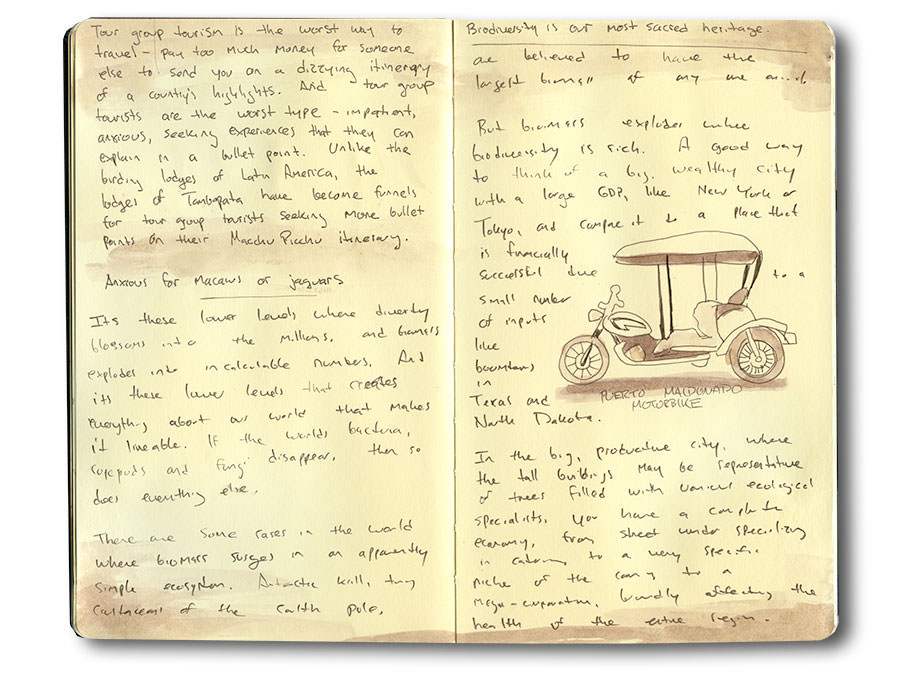 Tour group tourism is the worst way to
travel - pay too much money for someone
else to send you on a dizzying itinerary
of a country's highlights. And tour group
tourists are the worst type - impatient,
anxious, seeking experiences that they can
explain in a bullet point. Unlike the
birding lodges of Latin America, the
lodges of Tambopata have become funnels
for tour group tourists seeking more bullet
points on their Macchu Picchu itinerary.
Anxious for macaws or jaguars
Its these lower levels where diversity
blossoms into the millions, and biomass
explodes into incalculable numbers. And
its these lower levels that creates
everything about our world that makes
it liveable. If the worlds bacteria,
copepods and fungi disappear, then so
does everything else.
There are some cases in the world
where biomass surges in an apparently
simple ecosystem. Antarctic krill, tiny
crustaceans of the south pole,
Biodiversity is our most sacred heritage.
are believed to have the
largest biomass of any one animal.
But biomass explodes where
biodiversity is rich. A good way
to think of a big, wealthy city
with a large GDP, like New York or
Tokyo, and compare it to a place that
is financially
successful due to a
small number
of inputs
like
boomtowns
in
Texas and
North Dakota.
PUERTO MALDONADO
MOTORBIKE
In the big, productive city, where
the tall buildings may be representative
of trees filled with various ecological
specialists, you have a complete
economy, from street vendor specializing
in catering to a very specific
niche of the county to a
mega-corporation, broadly affecting the
health of the entire region.